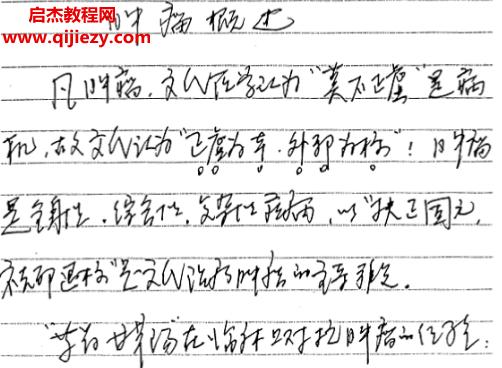 启杰教程网
www.qijiezy.com
肿瘤概述
凡肿瘤,文氏医学认为"莫不正虚"是病
机,故文氏认为"正虚为本·外邪为标"!肿瘤
是全身性、综合性、复杂性疾病,以"扶正固元,
祛邪"是文氏治疗肿瘤的主导
"在临床对抗肿瘤的经验: